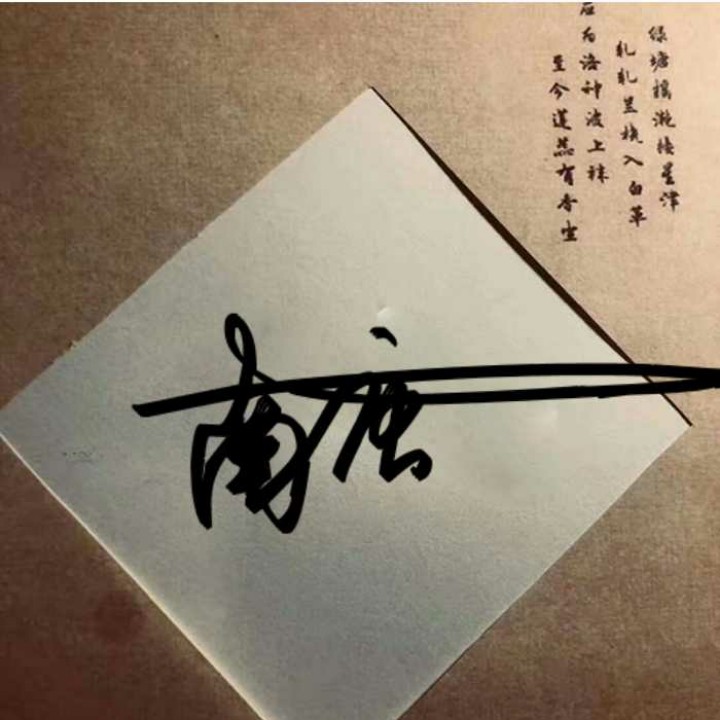 绿塘摇滟接星津
轧轧兰桡入白苹
应为洛神波上袜
至今莲蕊有香尘
南唐